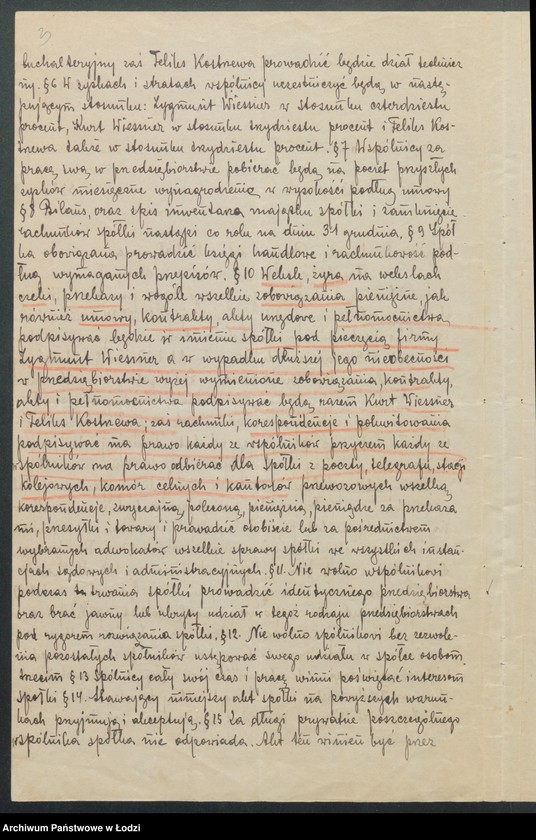 buchalteryjny zaś Feliks Kostnewa prowadzić będzie dział technicz
ny. §6 W zyskach i stratach wspólnicy uczestniczyć będą w nastę-
pującym stosunku: Zygmunt Wiessner w stosunku czterdziestu
procent, Kurt Wiessner w stosunku trzydziestu procent i Feliks Kos-
tnewa także w stosunku trzydziestu procent. §7 Wspólnicy za
pracę swą w przedsiębiorstwie pobierać będą na poczet przyszłych
zysków miesięczne wynagrodzenie w wysokości podług umowy
§8 Bilans, oraz spis inwentarza majątku spółki i zamknięcie
rachunków spółki nastąpi co roku na dniu 31 grudnia. §9 Spół
ka obowiązana prowadzić księgi handlowe i rachunkowość pod-
ług wymaganych przepisów. §10 Weksle, żyra na wekslach
czeki, przekazy i wogóle wszelkie zobowiązania pieniężne, jak
również umowy, kontrakty, akty urzędowe i pełnomocnictwa
podpisywać będzie w imieniu spółki pod pieczęcią firmy
Zygmunt Wiessner a w wypadku dłuższej jego nieobecności
w przedsiębiorstwie wyżej wymienione zobowiązania, kontrakty,
akty i pełnomocnictwa podpisywać będą razem Kurt Wiessner
i Feliks Kostnewa; zaś rachunki, korespondencję i pokwitowania
podpisywać ma prawo każdy ze wspólników przyczem każdy ze
wspólników ma prawo odbierać dla spółki z poczty, telegrafu, stacji
kolejowych, komór celnych i kantorów przewozowych wszelką
korespondencję, zwyczajną, poleconą, pieniężną, pieniądze za przekaza
mi, przesyłki i towary i prowadzić osobiście lub za pośrednictwem
wybranych adwokatów wszelkie sprawy spółki we wszystkich instan-
cjach sądowych i administracyjnych. §11. Nie wolno wspólnikowi
podczas trwania spółki prowadzić identycznego przedsiębiorstwa
oraz brać jawny lub ukryty udział w tegoż rodzaju przedsiębiorstwach
pod rygorem rozwiązania spółki. §12. Nie wolno spólnikowi bez zezwole-
nia pozostałych spólników ustępować swego udziału w spółce osobom
trzecim §13 Spólnicy cały swój czas i pracę winni poświęcać interesom
spółki §14. Stawający niniejszy akt spółki na powyższych warun-
kach przyjmują i akceptują. §15 Za długi prywatne poszczególnego
wspólnika spółka nie odpowiada. Akt ten winien być przez
Archiwum Państwowe w Łodzi